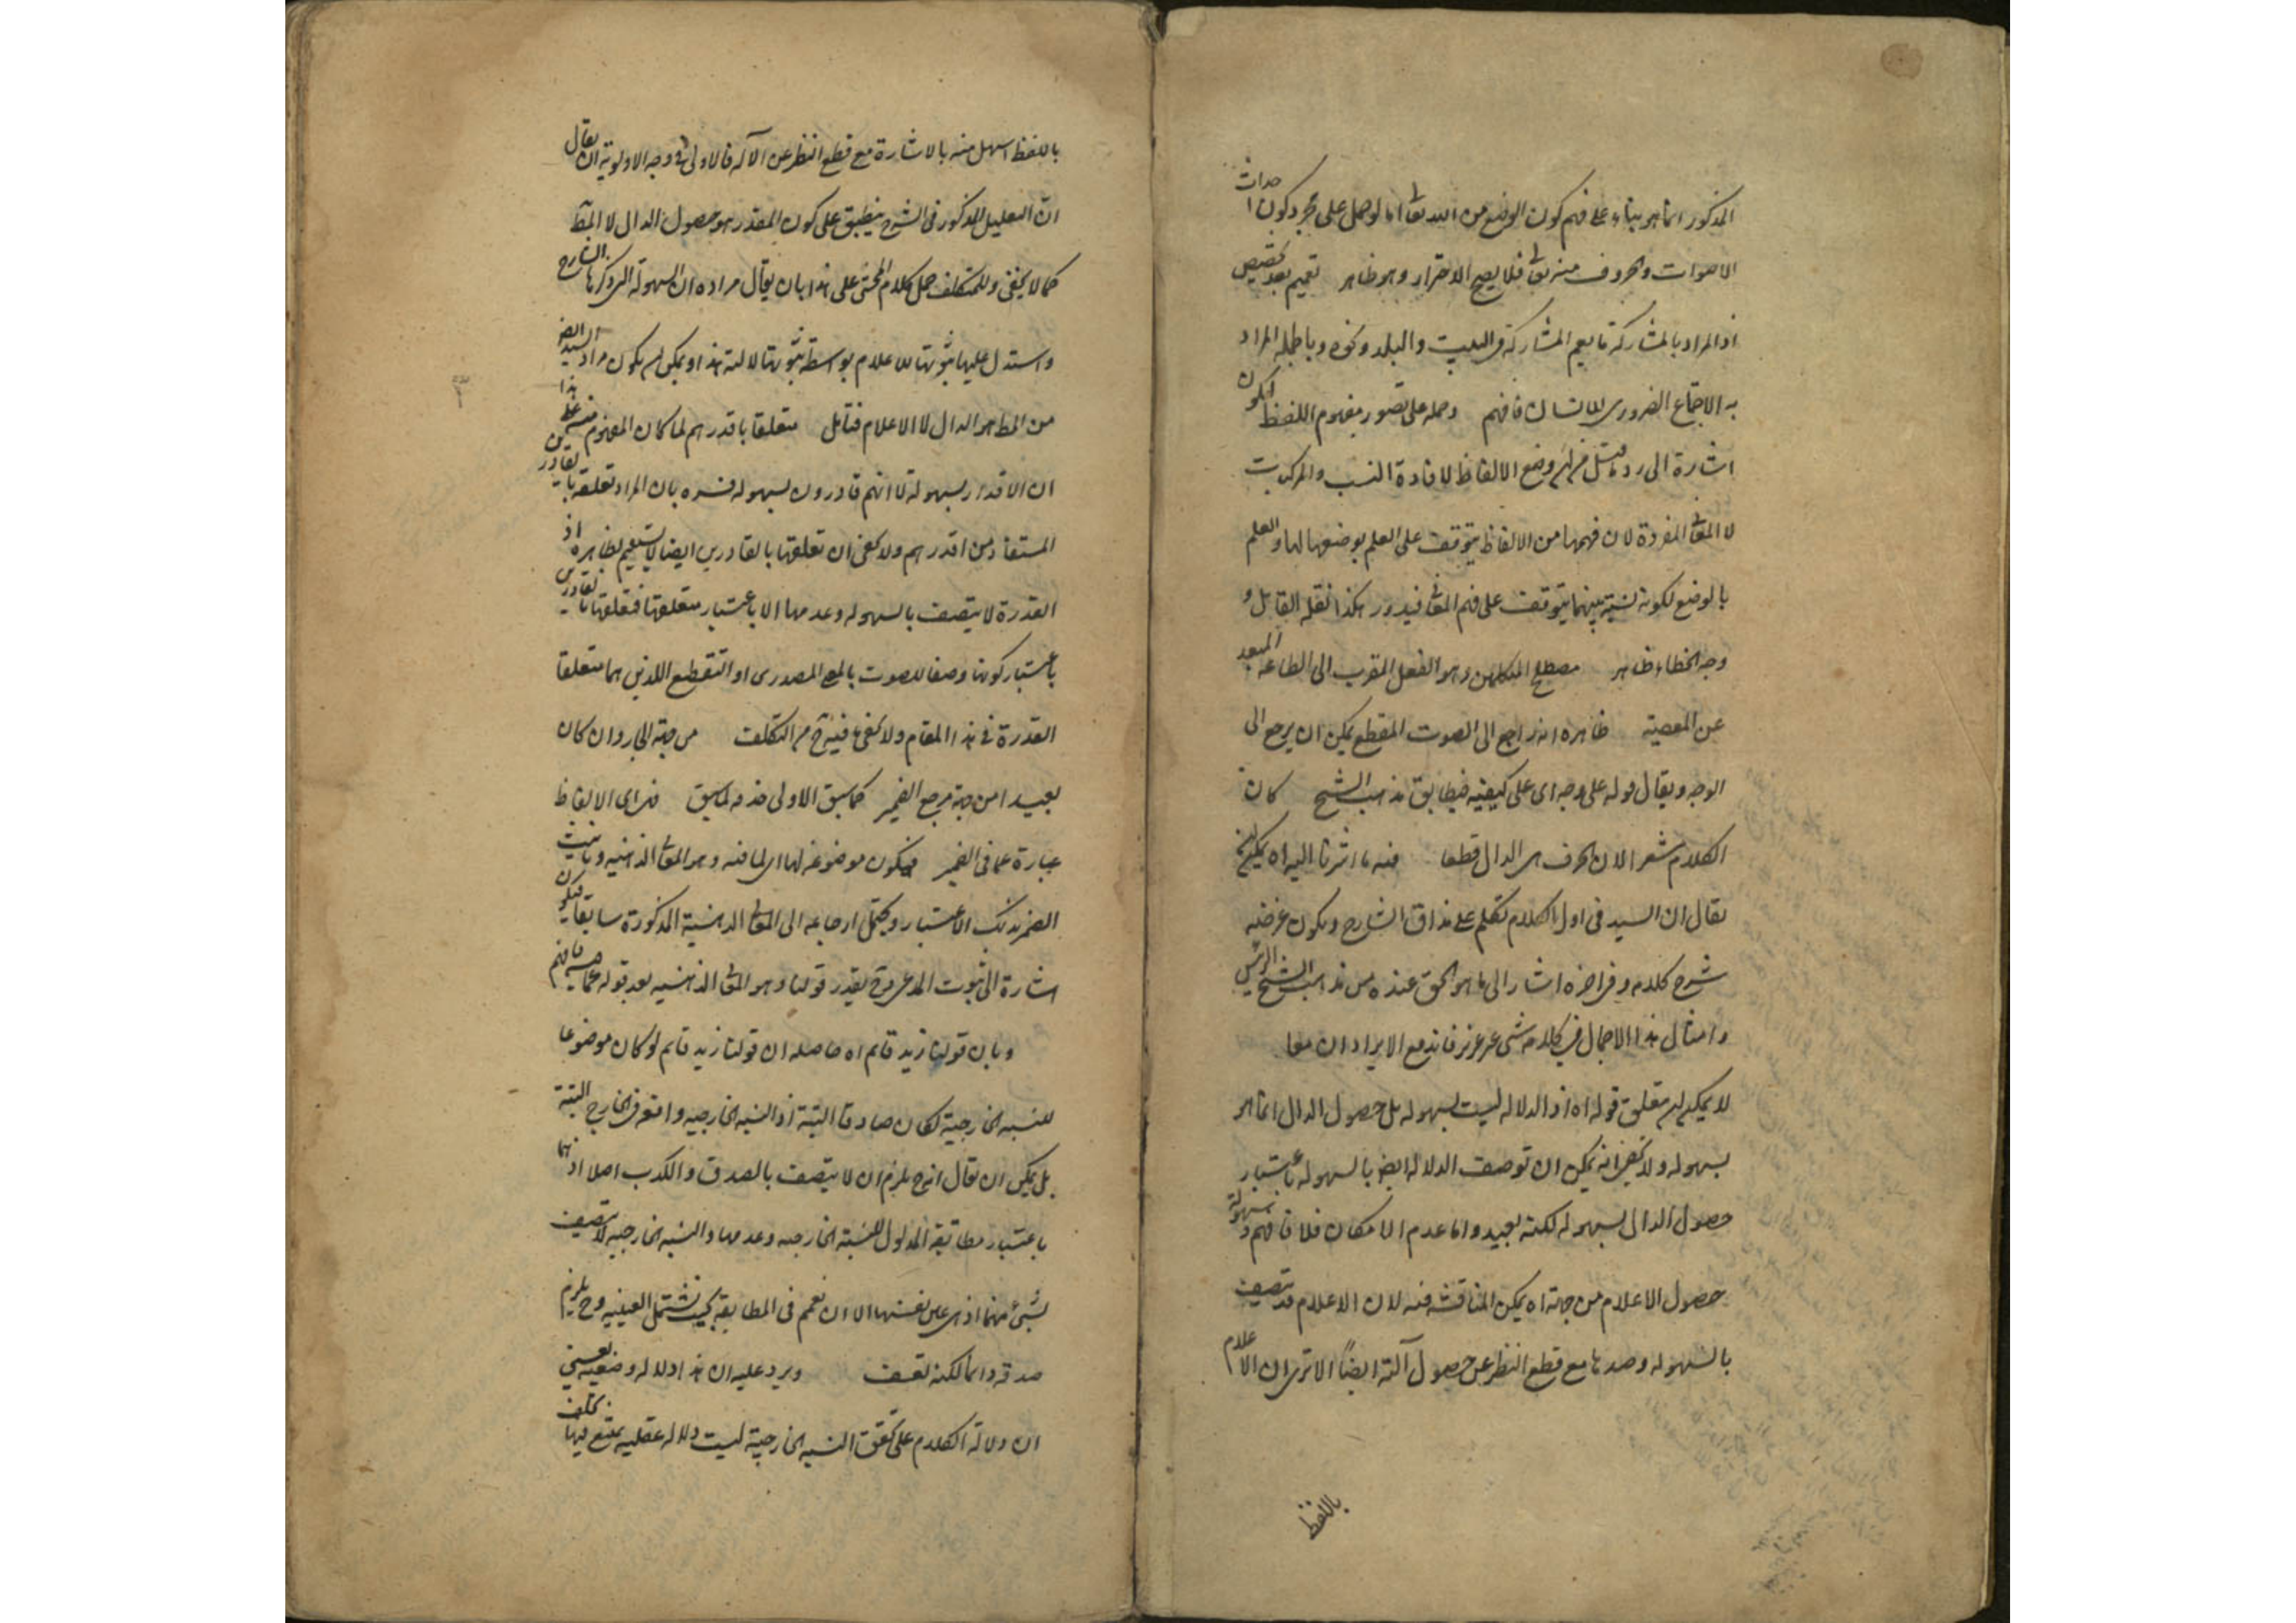 المذكور انما هو بناء على فهم كون الوضع من الله تعالى اما لو حمل على مجرد كون احداث
الاصوات والحروف منه تعالى فلا يصح الاحتراز وهو ظاهر تعميم بعد تخصيص
اذ المراد بالمشاركة ما يعم المشاركة فى البيت والبلد ونحوه وبالجملة المراد
به الاجتماع الضرورى للانسان فافهم وحمله على تصور مفهوم اللفظ ليكون
اشارة الى رد ما قيل من ان وضع الالفاظ لافادة النسب والمركبات
لا المعانى المفردة لان فهمها من الالفاظ يتوقف على العلم بوضعها لها والعلم
بالوضع لكونه نسبة بينهما يتوقف على فهم المعانى فيدور هكذا نقله القائل و
وجه الخطاء ظاهر مصطلح المتكلمين وهو الفعل المقرب الى الطاعة المبعد
عن المعصية ظاهره انه راجع الى الصوت المقطع يمكن ان يرجع الى
الوجه ويقال قوله على وجه اى على كيفية فيطابق مذهب الشيخ كان
الكلام مشعر الان الحرف هى الدال قطعا فيه ما اشرنا اليه اه يمكن
يقال ان السيد فى اول الكلام تكلم على مذاق الشارح ويكون غرضه
شرح كلامه وفى اخره اشار الى ما هو الحق عنده من مذهب الشيخ الرئيس
وامثال هذا الاجمال فى كلامه شى غير عزيز فاندفع الايراد ان معا
لا يمكن متعلق قوله اه اذ الدلالة ليست بسهولة بل حصول الدال انما هو
بسهولة ولا يخفى انه يمكن ان توصف الدلالة ايضا بالسهولة باعتبار
حصول الدال بسهولة لكنه بعيد واما عدم الامكان فلا فافهم وسهولة
حصول الاعلام من جهته اه يمكن المناقشة فيه لان الاعلام قد يتصف
بالسهولة وضدها مع قطع النظر عن حصول آلته ايضاً الا ترى ان الاعلام
باللفظ
باللفظ اسهل منه بالاشارة مع قطع النظر عن الآلة فالاولى فى وجه الاولوية ان يقال
ان التعليل المذكور فى الشرح ينطبق على كون المقدر هو حصول الدال لا المط
كما لا يخفى وللمتكلف حمل كلام المحشى على هذا بان يقال مراده ان السهولة التى ذكرها الشارح
واستدل عليها بثبوتها للاعلام بواسطة ثبوتها لآلته هذا ويمكن ان يكون مراد السيد ايضا
من المط هو الدال لا الاعلام فتامل متعلقا باقدرهم لما كان المفهوم منه على هذا
ان الاقدار بسهولة لا انهم قادرون بسهولة فسره بان المراد تعلقه بالقادرين
المستفاد من اقدرهم ولا يخفى ان تعلقها بالقادرين ايضا لا يستقيم بظاهره اذ
القدرة لا يتصف بالسهولة وعدمها الا باعتبار متعلقها فتعلقها بالقادرين
باعتبار كونها وصفا للصوت بالمعنى المصدرى او التقطيع اللذين هما متعلقا
القدرة فى هذا المقام ولا يخفى ما فيه ح من التكلف من جهة الجار وان كان
بعيدا من جهة مرجع الضمير كما سبق الاولى حذف لما سبق فهى اى الالفاظ
عبارة عما فى الضمير فيكون موضوعة لها اى لما فيه وهى المعانى الذهنية وتانيث
الضمير بذلك الاعتبار ويحتمل ارجاعه الى المعانى الذهنية المذكورة سابقا فيكون
اشارة الى ثبوت المدعى وح يقدر قولنا وهو المعانى الذهنية بعد قوله عما
وبان قولنا زيد قائم اه حاصله ان قولنا زيد قائم لو كان موضوعا
للنسبة الخارجية لكان صادقا البتة اذ النسبة الخارجية واقعة فى الخارج البتة
بل يمكن ان يقال انه ح يلزم ان لا يتصف بالصدق والكذب اصلا اذ هما
باعتبار مطابقة المدلول للنسبة الخارجية وعدمها والنسبة الخارجية لا يتصف
بشئ منهما اذ هى عين نفسها الا ان نعمم فى المطابقة بحيث تشتمل العينية وح يلزم
صدقه دائما لكنه تعسف ويرد عليه ان هذا دلالة وضعية يعنى
ان دلالة الكلام على تحقق النسبة الخارجية ليست دلالة عقلية يمتنع فيها تخلف